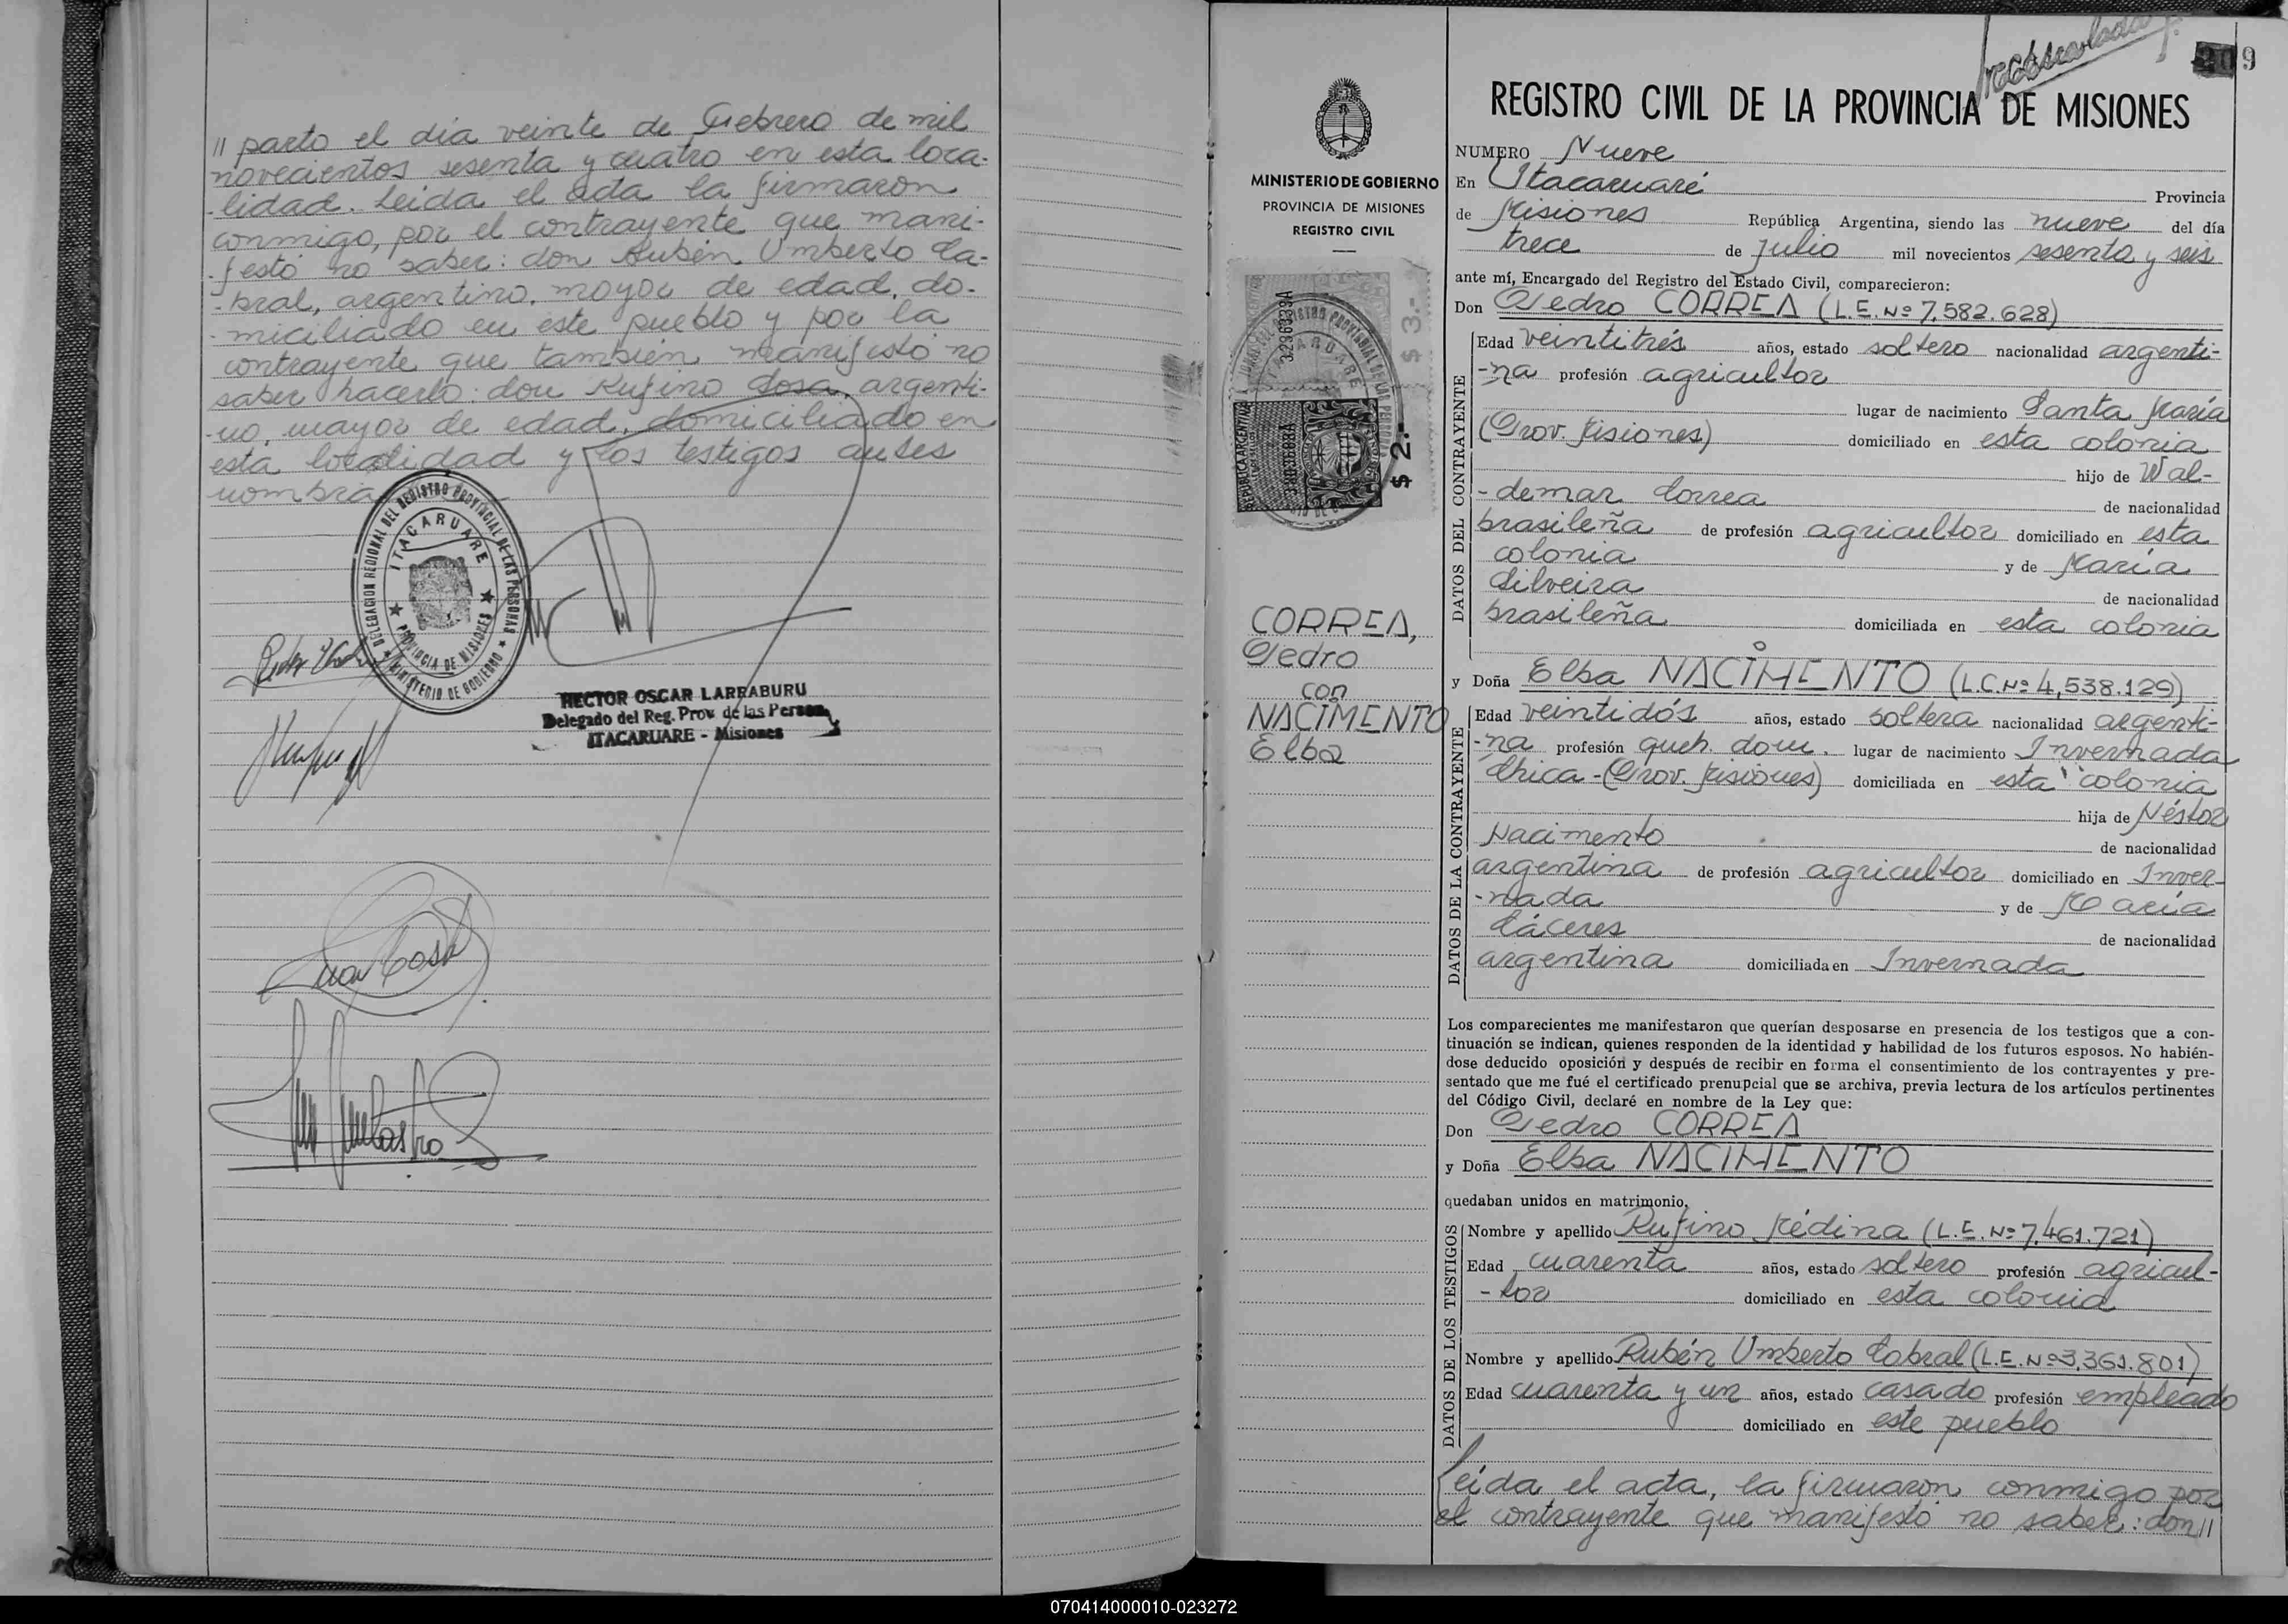 // parto el día veinte de Febrero de mil
novecientos sesenta y cuatro en esta loca-
-lidad. Leída el acta la firmaron
conmigo, por el contrayente que mani-
-festó no saber: don Rubén Umberto Ca-
-bral, argentino, mayor de edad, do-
-miciliado en este pueblo y por la
contrayente que también manifestó no
saber hacerlo: don Rufino Sosa, argenti-
-no, mayor de edad, domiciliado en
esta localidad y los testigos antes
nombra
DELEGACION REGIONAL DEL REGISTRO PROVINCIAL DE LAS PERSONAS
ITACARUARE
PROVINCIA DE MISIONES
MINISTERIO DE GOBIERNO
HECTOR OSCAR LARRABURU
Delegado del Reg. Prov. de las Person.
ITACARUARE - Misiones
9
REGISTRO CIVIL DE LA PROVINCIA DE MISIONES
MINISTERIO DE GOBIERNO
PROVINCIA DE MISIONES
REGISTRO CIVIL
$ 3.-
REPUBLICA ARGENTINA
$ 2.-
CORREA,
Pedro
con
NACIMENTO
Elba
NUMERO Nueve
En Itacaruaré Provincia
de Misiones República Argentina, siendo las nueve del día
trece de julio mil novecientos sesenta y seis
ante mí, Encargado del Registro del Estado Civil, comparecieron:
Don Pedro CORREA (L.E. Nº 7.582.628)
DATOS DEL CONTRAYENTE
Edad veintitrés años, estado soltero nacionalidad argenti-
-na profesión agricultor
lugar de nacimiento Santa María
(Prov. Misiones) domiciliado en esta colonia
hijo de Wal-
-demar Correa de nacionalidad
brasileña de profesión agricultor domiciliado en esta
colonia y de María
Silveira de nacionalidad
brasileña domiciliada en esta colonia
y Doña Elba NACIMENTO (L.C. Nº 4,538.129)
DATOS DE LA CONTRAYENTE
Edad veintidós años, estado soltera nacionalidad argenti-
-na profesión queh. dom. lugar de nacimiento Invernada
Chica-(Prov. Misiones) domiciliada en esta colonia
hija de Néstor
Nacimento de nacionalidad
argentina de profesión agricultor domiciliado en Inver-
-nada y de María
Cáceres de nacionalidad
argentina domiciliada en Invernada
Los comparecientes me manifestaron que querían desposarse en presencia de los testigos que a con-
tinuación se indican, quienes responden de la identidad y habilidad de los futuros esposos. No habién-
dose deducido oposición y después de recibir en forma el consentimiento de los contrayentes y pre-
sentado que me fué el certificado prenupcial que se archiva, previa lectura de los artículos pertinentes
del Código Civil, declaré en nombre de la Ley que:
Don Pedro CORREA
y Doña Elba NACIMENTO
quedaban unidos en matrimonio.
DATOS DE LOS TESTIGOS
Nombre y apellido Rufino Médina (L.E. Nº 7.461.721)
Edad cuarenta años, estado soltero profesión agricul-
-tor domiciliado en esta colonia
Nombre y apellido Rubén Umberto Cabral (L.E. Nº 3.361.801)
Edad cuarenta y un años, estado casado profesión empleado
domiciliado en este pueblo
Leída el acta, la firmaron conmigo por
el contrayente que manifestó no saber: don //
070414000010-023272